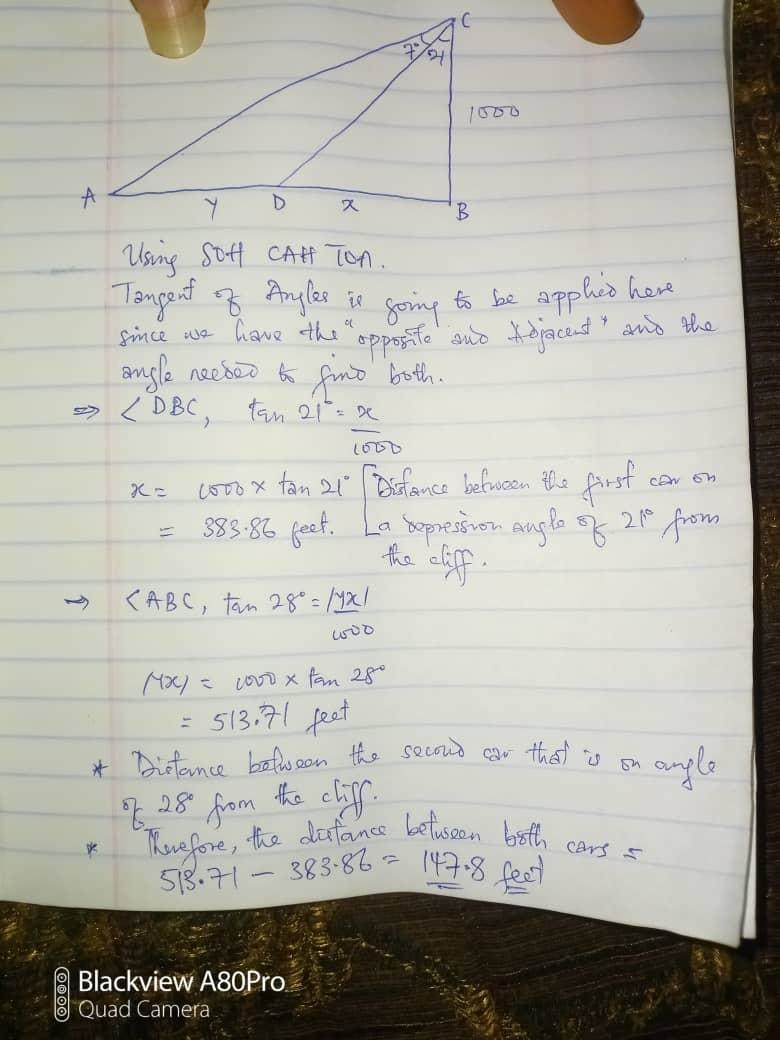 C
7° 21
1000
A
y D x
B
Using SOH CAH TOA.
Tangent of Angles is going to be applied here
since we have the "opposite and Adjacent" and the
angle needed to find both.
⇒ < DBC, tan 21° = x
1000
x = 1000 x tan 21° [Distance between the first car on
= 383.86 feet. a depression angle of 21° from
the cliff.
→ <ABC, tan 28° = |yx|
1000
|yx| = 1000 x tan 28°
= 513.71 feet
* Distance between the second car that is on angle
of 28° from the cliff.
* Therefore, the distance between both cars =
513.71 - 383.86 = 147.8 feet
Blackview A80Pro
Quad Camera